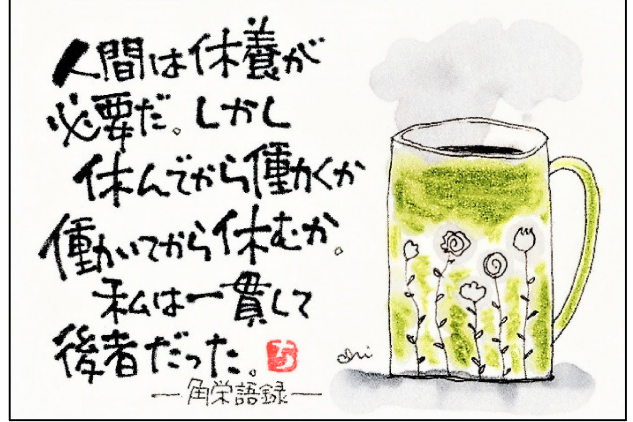 人間は休養が
必要だ。しかし
休んでから働くか
働いてから休むか。
私は一貫して
後者だった。
―角栄語録―